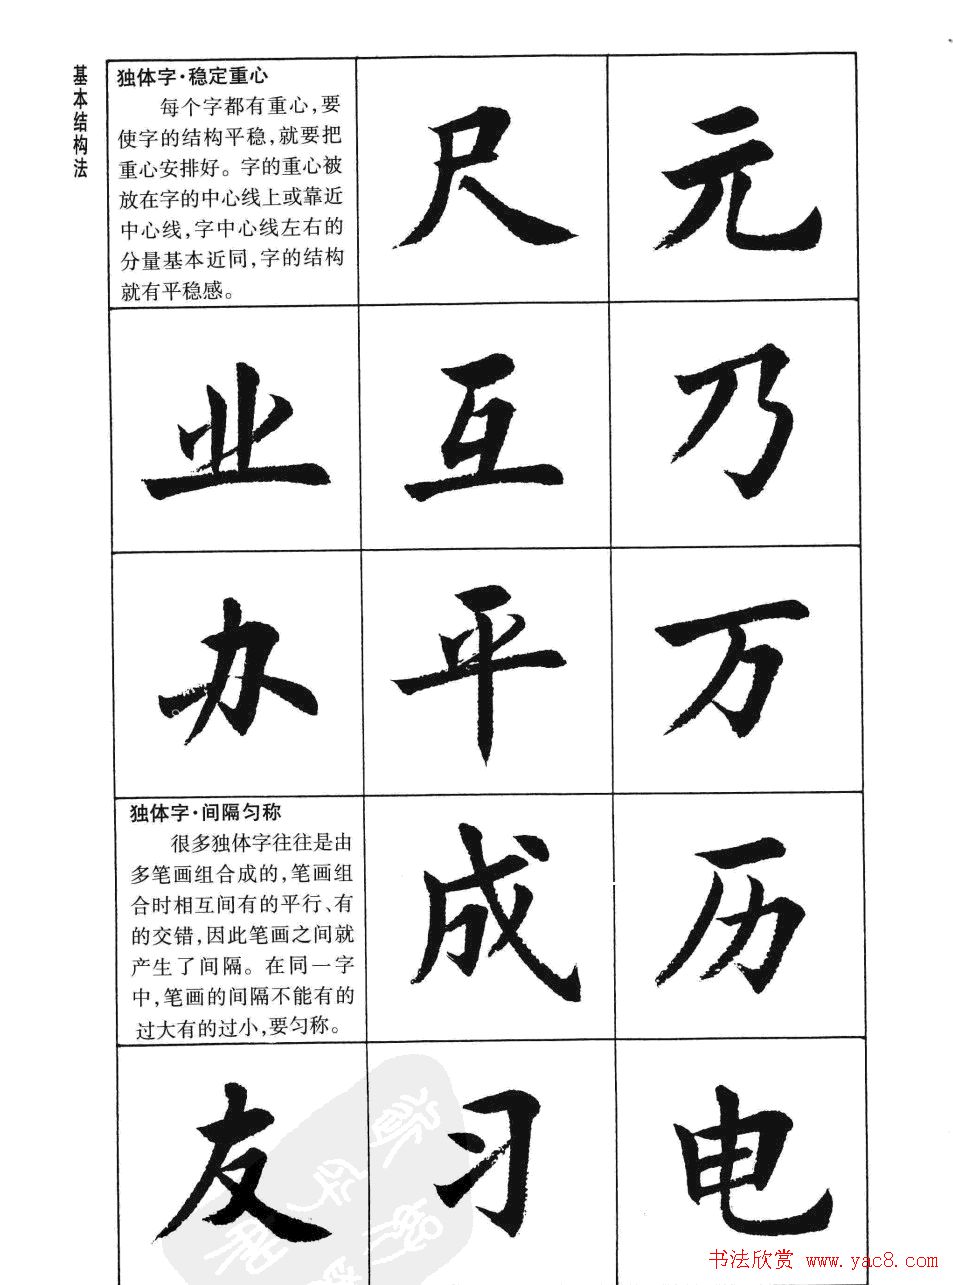 基本结构法
独体字·稳定重心
每个字都有重心,要
使字的结构平稳,就要把
重心安排好。字的重心被
放在字的中心线上或靠近
中心线,字中心线左右的
分量基本近同,字的结构
就有平稳感。
尺 元
业 互 乃
办 平 万
独体字·间隔匀称
很多独体字往往是由
多笔画组合成的,笔画组
合时相互间有的平行、有
的交错,因此笔画之间就
产生了间隔。在同一字
中,笔画的间隔不能有的
过大有的过小,要匀称。
成 历
友 习 电
书法欣赏 www.yac8.com